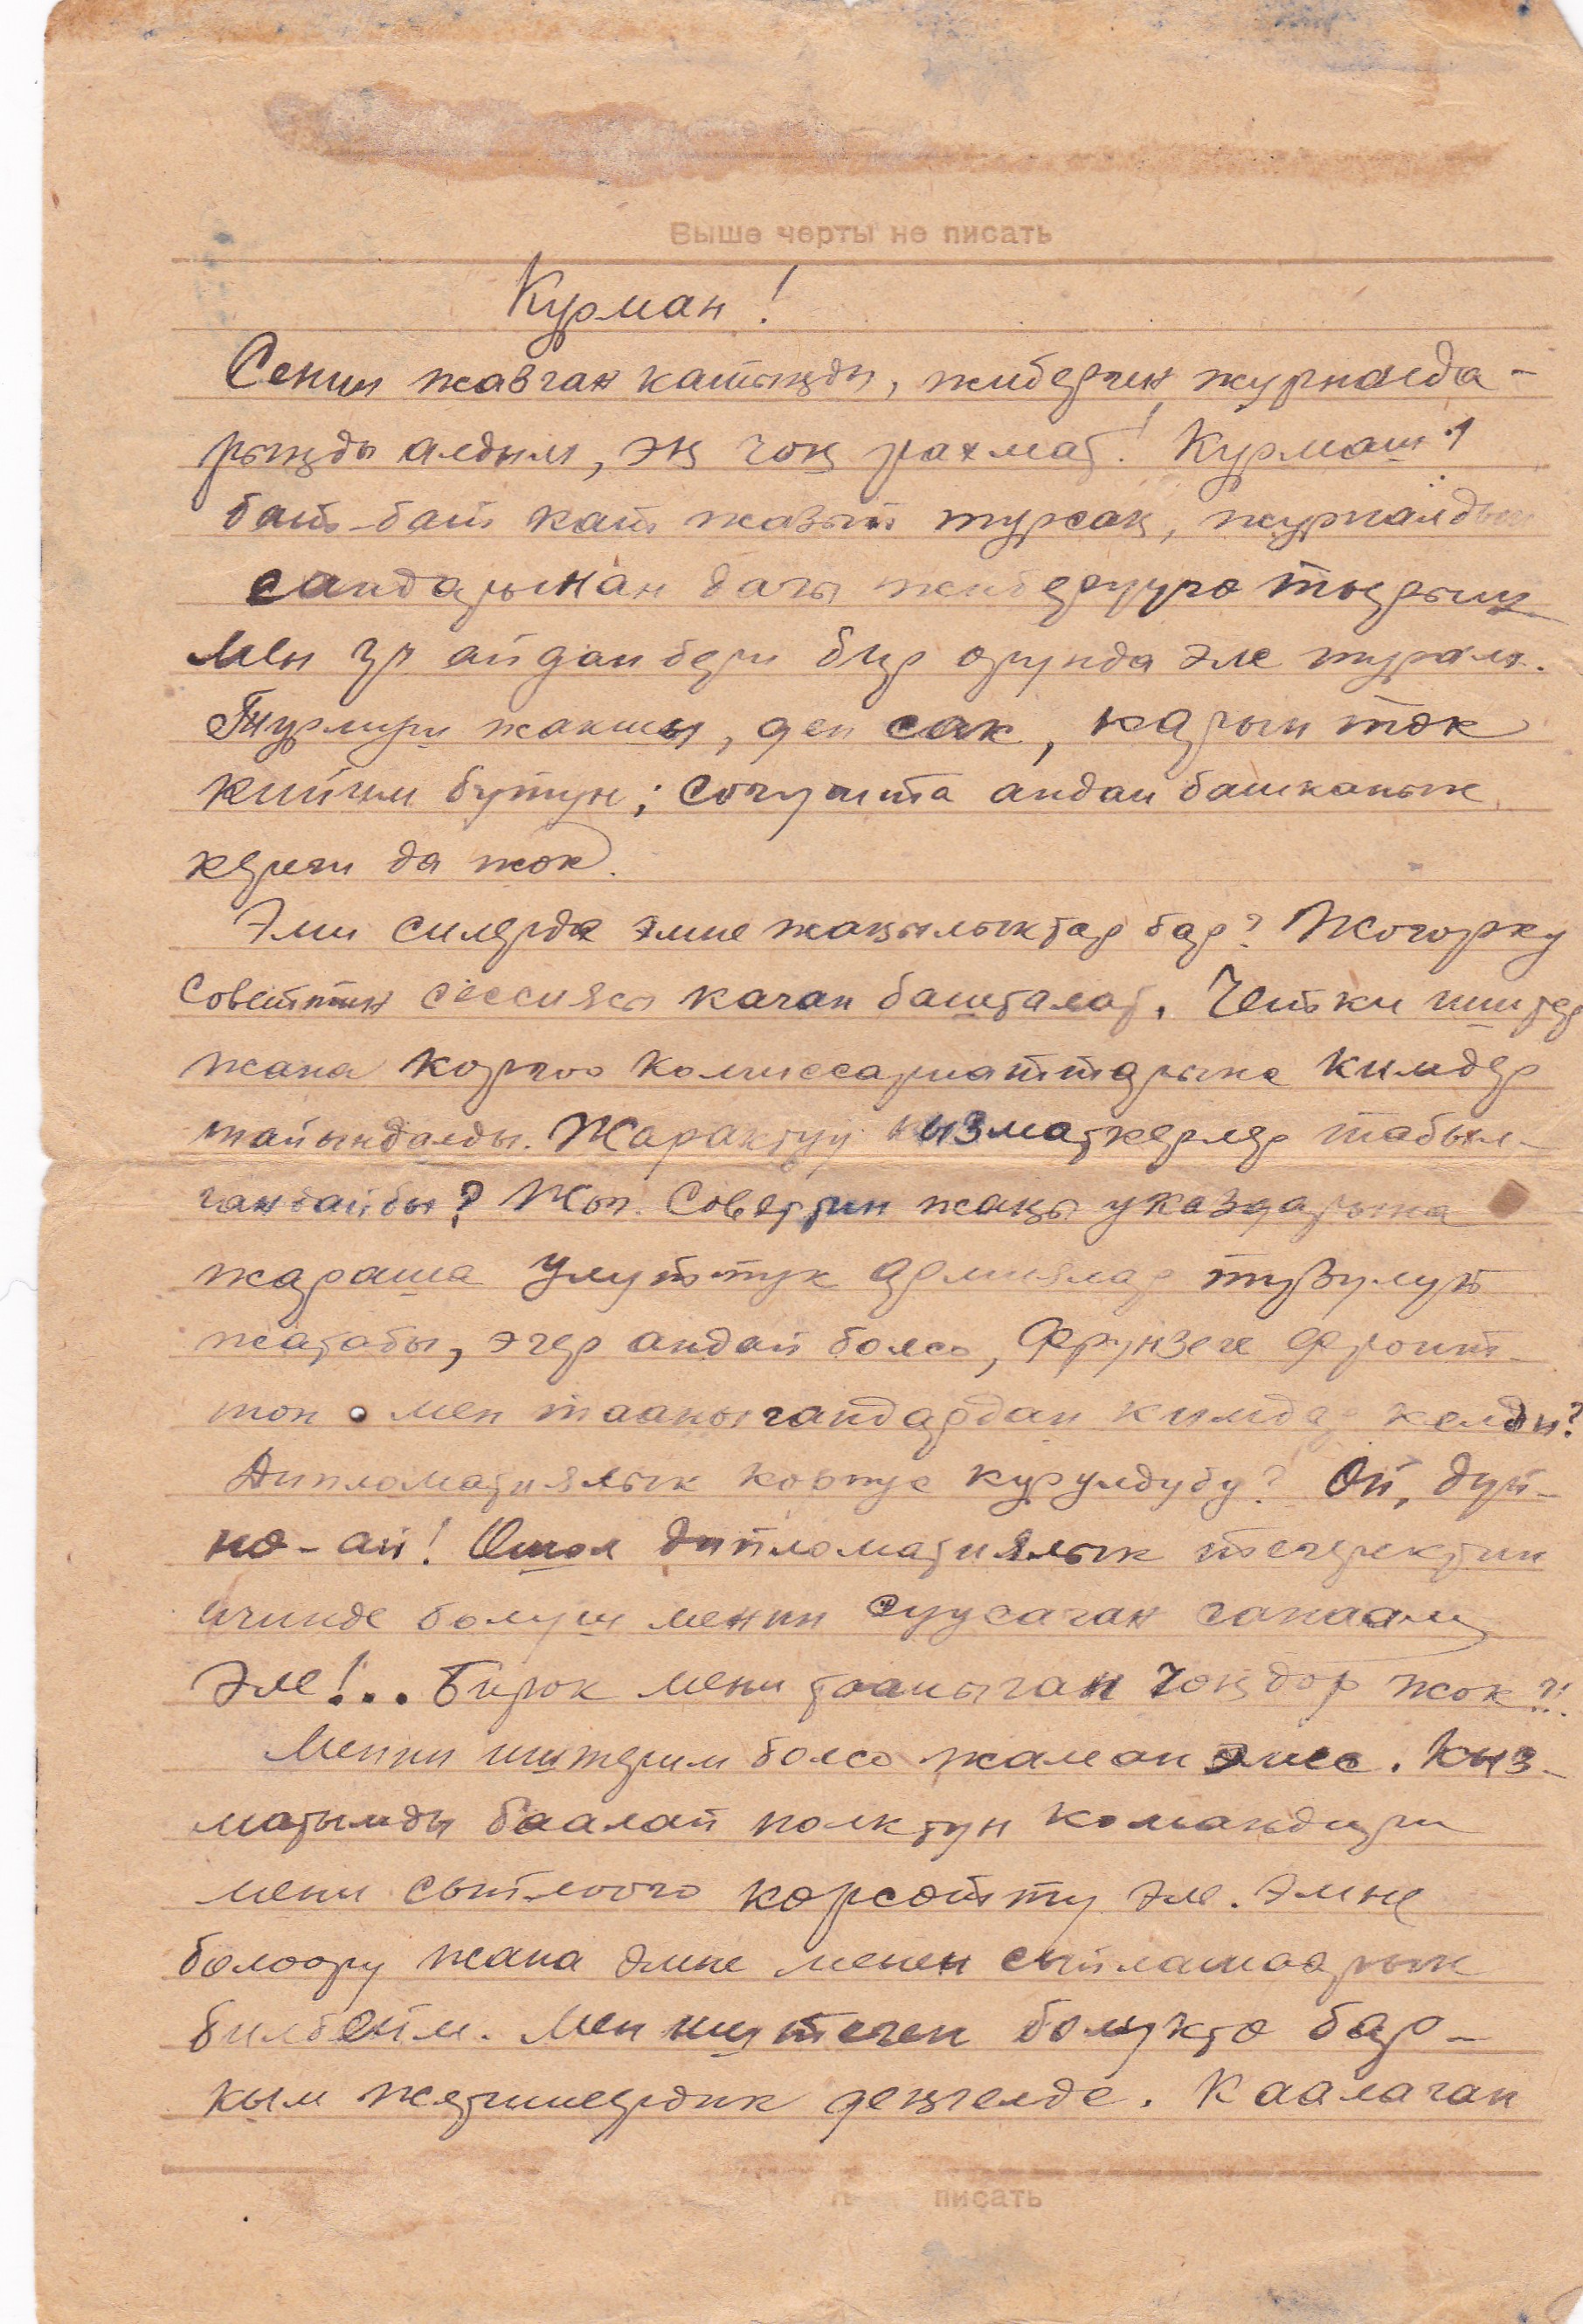 Выше черты не писать
Курман!
Сенин жазган катыңды, жиберген журналда-
рыңды алдым, эң чоң рахмат! Курмаш!
бат-бат кат жазып турсаң, журналдын
сандарынан дагы жиберүүгө тырыш
Мен үч айдан бери бир орунда эле турам.
Турмуш жакшы, ден сак, карын ток
кийим бүтүн; согушта андан башканын
кереги да жок.
Эми силерде эмне жаңылыктар бар? Жогорку
Советтин сессиясы качан башталат. Четки иштер
жана коргоо комиссариаттарына кимдер
тайындалды. Жарактуу кызматкерлер табыл-
гандайбы? Жог. Советтин жаңы указдарына
жараша улуттук армиялар түзүлүп
жатабы, эгер андай болсо, Фрунзеге фронт-
тон мен тааныгандардан кимдер келди?
Дипломатиялык корпус курулдубу? Ой, дүй-
нө-ай! Ошол дипломатиялык тегеректин
ичинде болуш менин суусаган санаам
эле!.. Бирок мени тааныган чоңдор жок?!
Менин иштерим болсо жаман эмес. Кыз-
матымды баалап полктун командири
мени сыйлоого көрсөттү эле. Эмне
болоору жана эмне менен сыйлашаарын
билбейм. Мен иштеген бөлүктө бар-
кым жетишердик деңгелде. Каалаган
писать